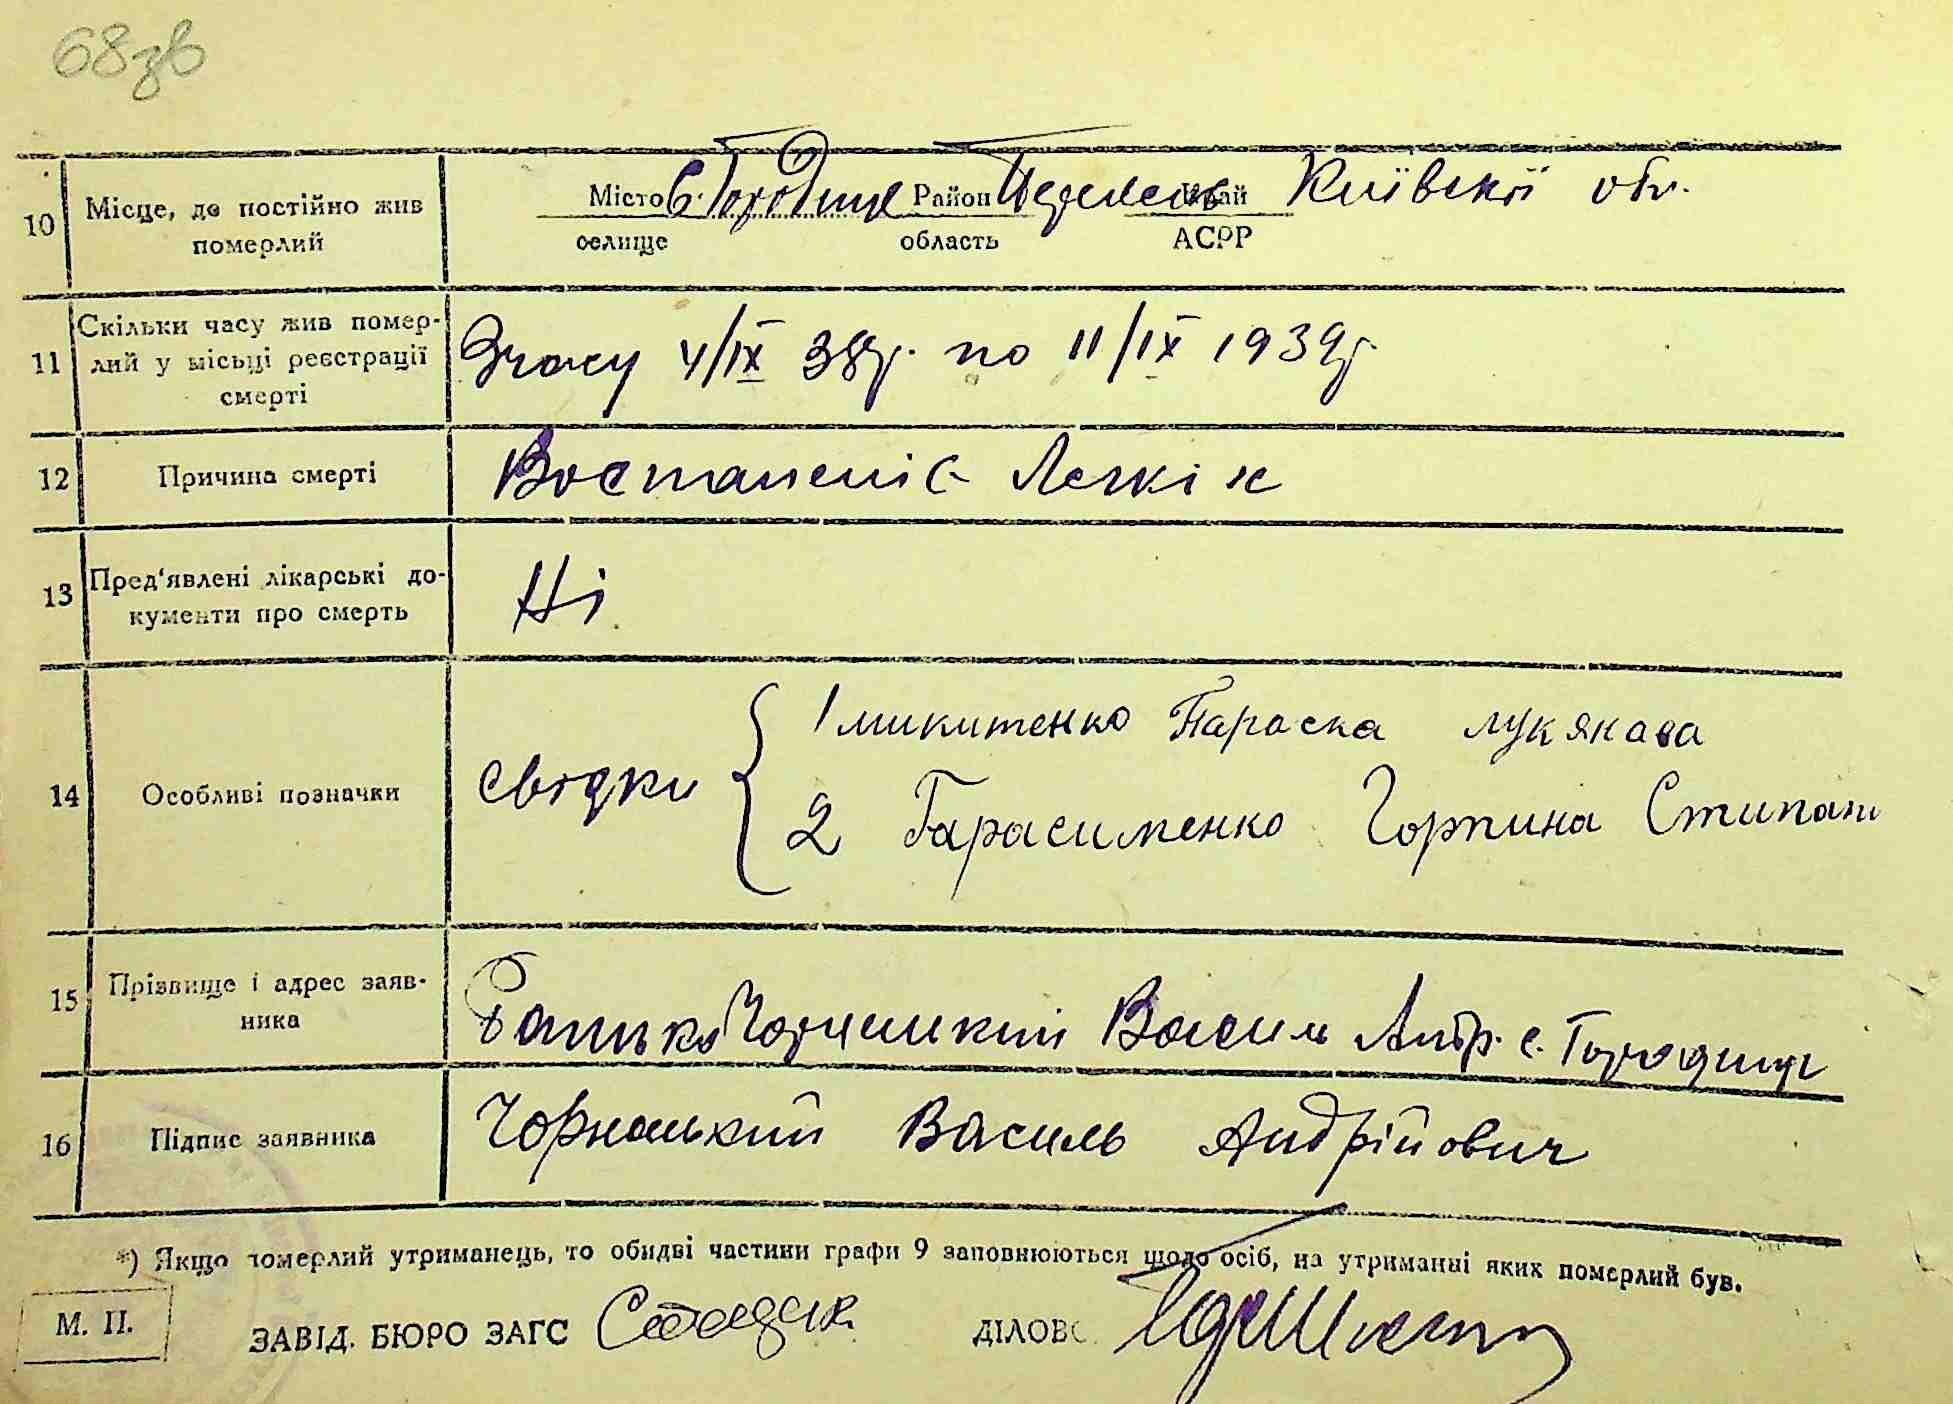 68зв
10 Місце, де постійно жив померлий
Місто с. Городище Район Київскої обл.
селище область Край АСРР
11 Скільки часу жив помер-
лий у місьці реєстрації
смерті
Зчасу 4/IX 38г. по 11/IX 1939г.
12 Причина смерті
Воспаленіє Легкіх
13 Пред'явлені лікарські до-
кументи про смерть
Ні
14 Особливі позначки
свідки
1 микитенко Параска лукянава
2 Гарасименко Горпина Стипан
15 Прізвище і адрес заяв-
ника
Батько Чорнецкий Василь Андр. с. Городище
16 Підпис заявника
Чорнецький Василь Андрійович
*) Якщо померлий утриманець, то обидві частини графи 9 заповнюються щодо осіб, на утриманні яких померлий був.
М. П.
ЗАВІД. БЮРО ЗАГС
ДІЛОВС